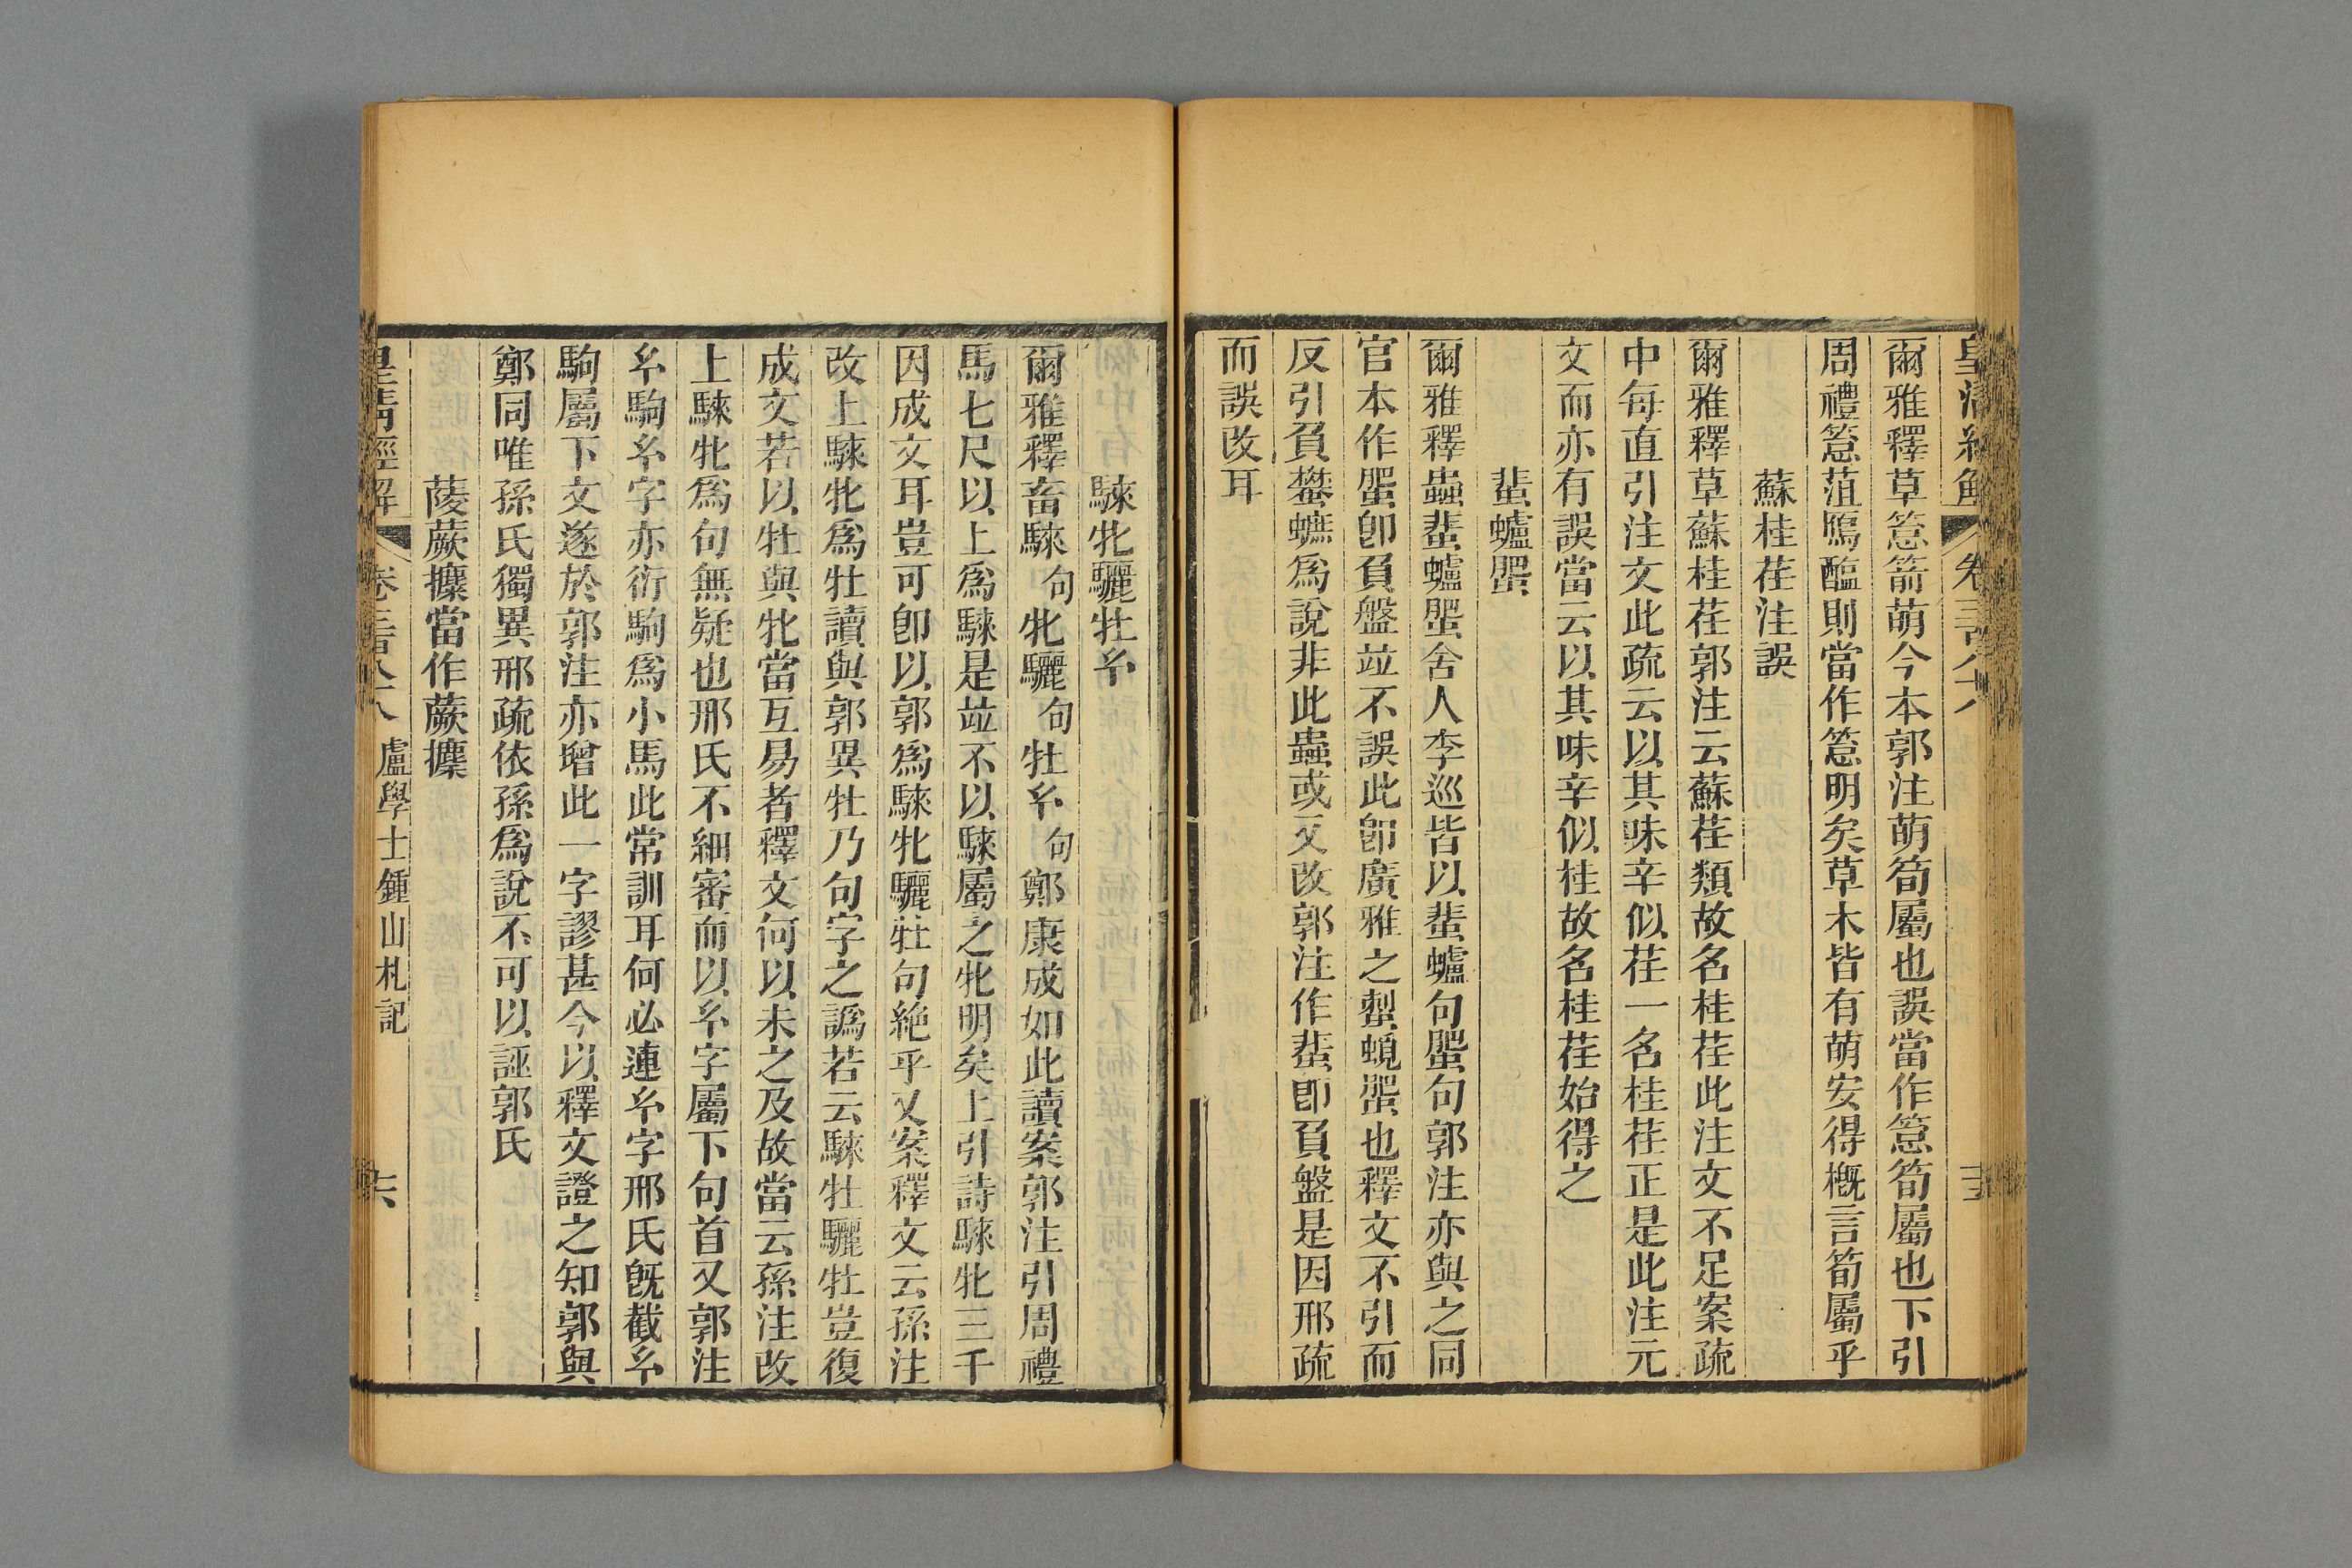 皇清經解 卷三百八十八
爾雅釋草篙箭萌今本郭注萌筍屬也誤當作篙筍屬也下引
周禮篙菹鴈醢則當作篙明矣草木皆有萌安得概言筍屬乎
蘇桂荏注誤
爾雅釋草蘇桂荏郭注云蘇荏類故名桂荏此注文不足案疏
中每直引注文此疏云以其味辛似荏一名桂荏正是此注元
文而亦有誤當云以其味辛似桂故名桂荏始得之
蜚蠦蜰
爾雅釋蟲蜚蠦蜰舍人李巡皆以蜚蠦句蜰句郭注亦與之同
官本作蜰卽負盤竝不誤此卽廣雅之䗪也釋文不引而
反引負蠜蟅為說非此蟲或又改郭注作蜚卽負盤是因邢疏
而誤改耳
騋牝驪牡𤣥
爾雅釋畜騋句牝驪句牡𤣥句鄭康成如此讀案郭注引周禮
馬七尺以上為騋是竝不以騋屬之牝明矣上引詩騋牝三千
因成文耳豈可卽以郭為騋牝驪牡句絶乎又案釋文云孫注
改上騋牝為牡讀與郭異牡乃句字之譌若云騋牡驪牡豈復
成文若以牡與牝當互易者釋文何以未之及故當云孫注改
上騋牝為句無疑也邢氏不細審而以𤣥字屬下句首又郭注
𤣥駒𤣥字亦衍駒為小馬此常訓耳何必連𤣥字邢氏旣截𤣥
駒屬下文遂於郭注亦增此一字謬甚今以釋文證之知郭與
鄭同唯孫氏獨異邢疏依孫為說不可以誣郭氏
蔆蕨攗當作蕨攗
皇清經解 卷三百八十八 盧學士鍾山札記 六